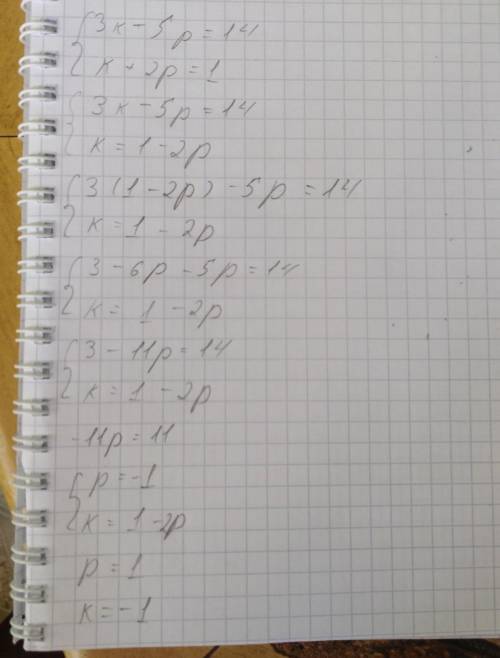 3к - 5p = 14
к + 2p = 1
3к - 5p = 14
к = 1 - 2p
3(1 - 2p) - 5p = 14
к = 1 - 2p
3 - 6p - 5p = 14
к = 1 - 2p
3 - 11p = 14
к = 1 - 2p
-11p = 11
p = -1
к = 1 - 2p
p = 1
к = -1